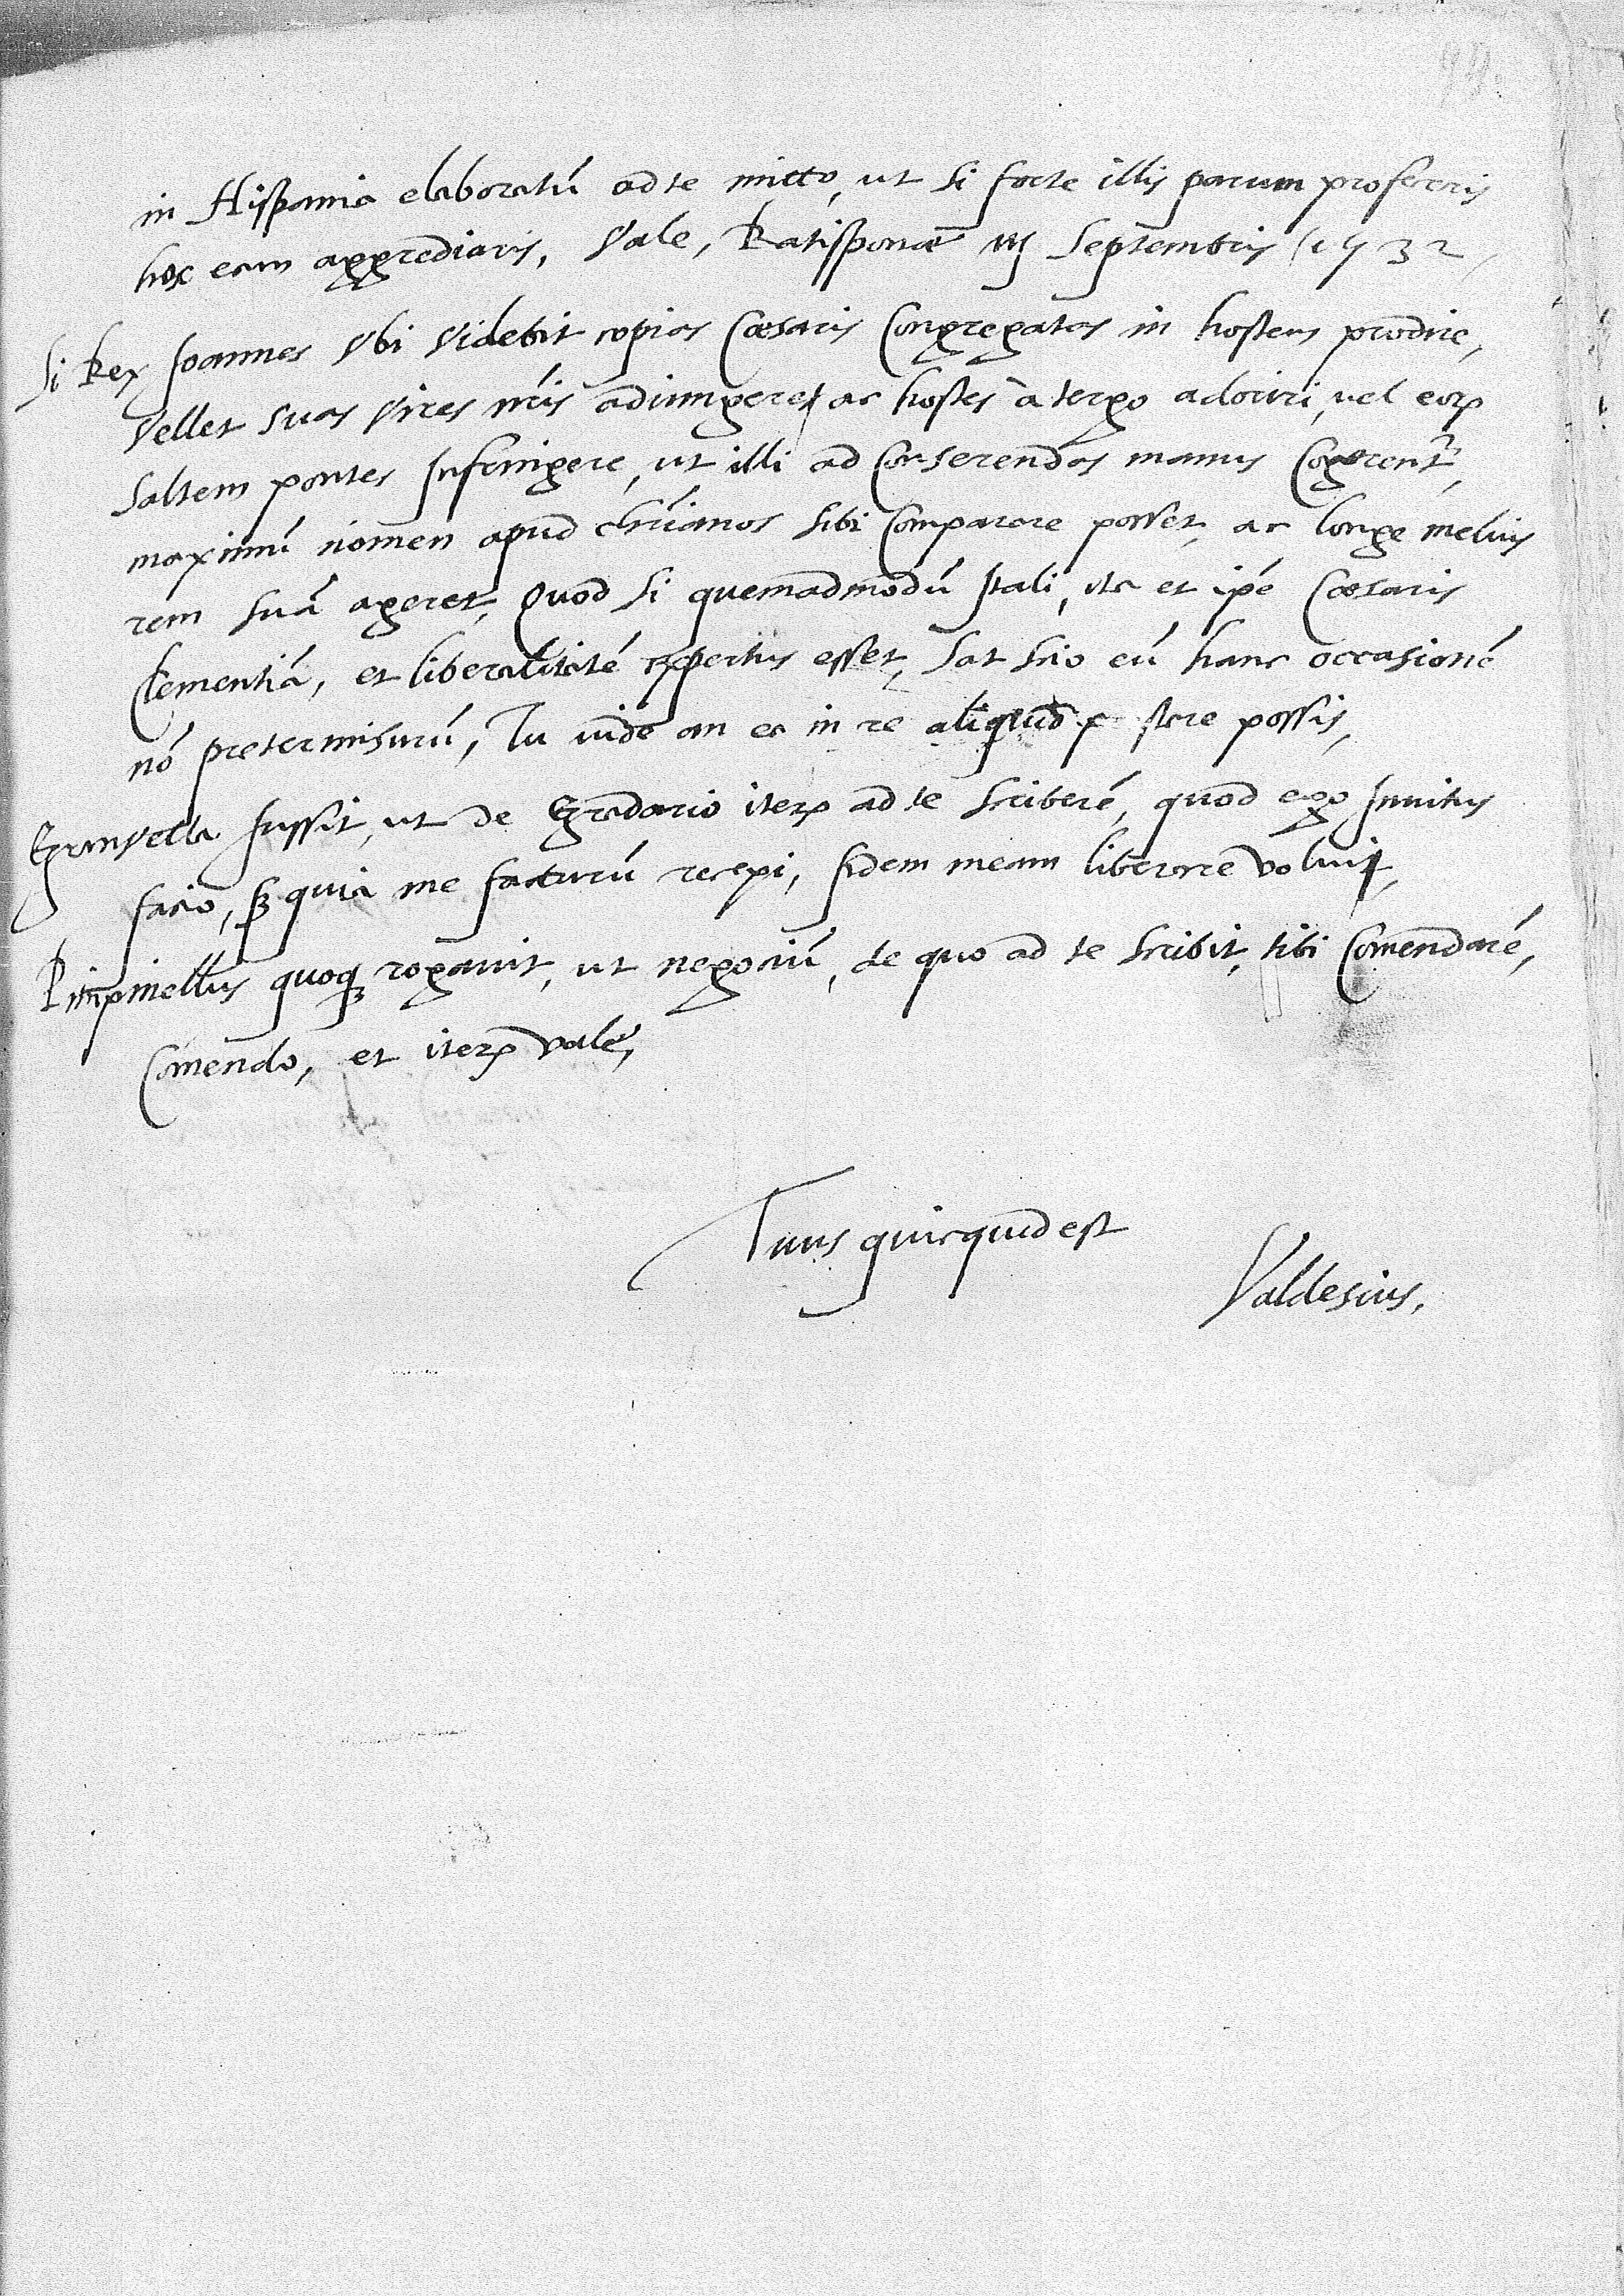 in Hispania elaboratū ad te mitto, ut si forte illis parum profeceris
hoc eam aggrediaris, Vale, Ratisponæ iij Septembris 1532,
Si Rex Joannes Vbi Videbit copias Cæsaris Congregatas in hostem prodire,
Vellet suas Vires nr̃is adiungere, ac hostes à tergo adoriri, vel eorꝝ
saltem pontes Infringere, ut illi ad Conserendas manus Cogerent̃,
maximū nomen apud chr̃ianos sibi Comparare posset, ac longe melius
rem suā ageret, Quod si quemadmodū Itali, ita et ip̃e Cæsaris
Clementiā, et liberalitatē expertus esset, sat scio eū hanc occasionē
nō pretermisurū, Tu uide an ea in re aliquid p̃stare possis,
Granvella Jussit, ut de Gradario iterꝝ ad te scriberē, quod ego Inuitus
facio, sꝫ quia me facturū recepi, fidem meam liberare Volui,
Pimpinellus quoqꝫ rogauit, ut negociū, de quo ad te scribit, tibi Comendarē,
Comendo, et iterꝝ Vale,
Tuus quicquid est
Valdesius.